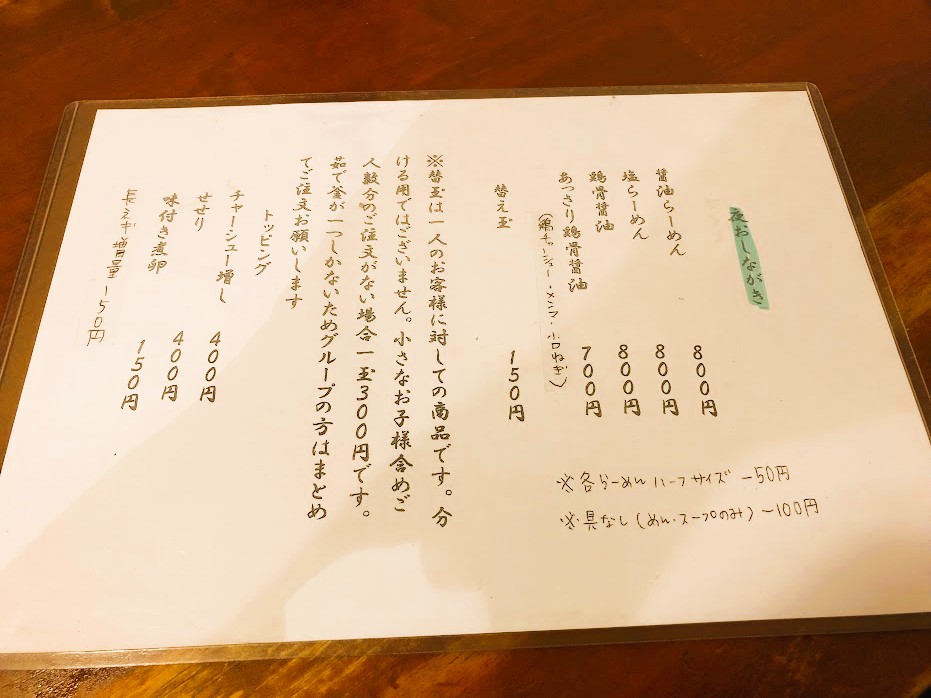 夜おしながき
醤油らーめん 800円
塩らーめん 800円
鶏骨醤油 800円
あっさり鶏骨醤油 700円
(鶏チャーシュー・メンマ・小口ねぎ)
替え玉 150円
※替玉は一人のお客様に対しての商品です。分
ける用ではございません。小さなお子様含めご
人数分のご注文がない場合一玉300円です。
茹で釜が一つしかないためグループの方はまとめ
てご注文お願いします
トッピング
チャーシュー増し 400円
せせり 400円
味付き煮卵 150円
長ネギ増量 150円
※各らーめんハーフサイズ -50円
※具なし(めん・スープのみ) -100円